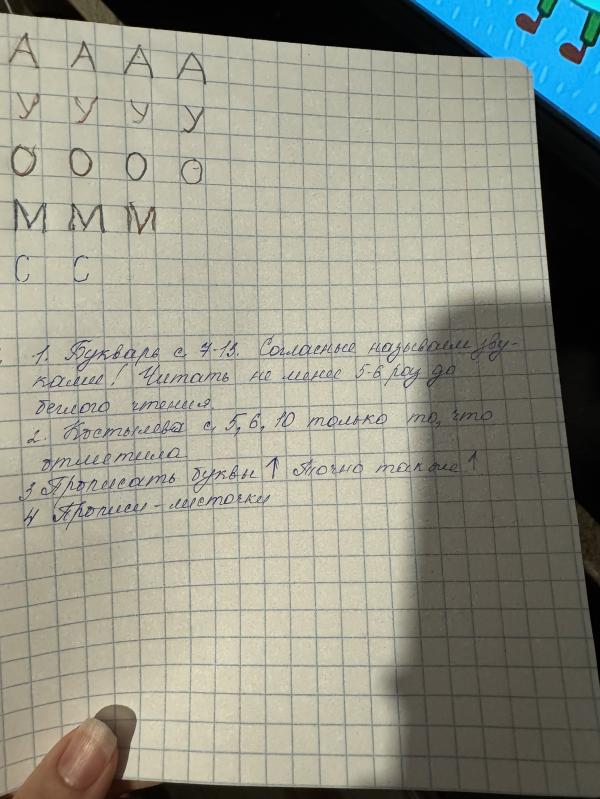 А А А А
У У У У
О О О О
М М М М
С С
1. Букварь с. 7-13. Согласные называем зву-
ками! Читать не менее 5-6 раз до
беглого чтения.
2. Костылева с, 5, 6, 10 только то, что
отметила
3 Прописать буквы ↑ Точно такие ↑
4 Прописи - листочки